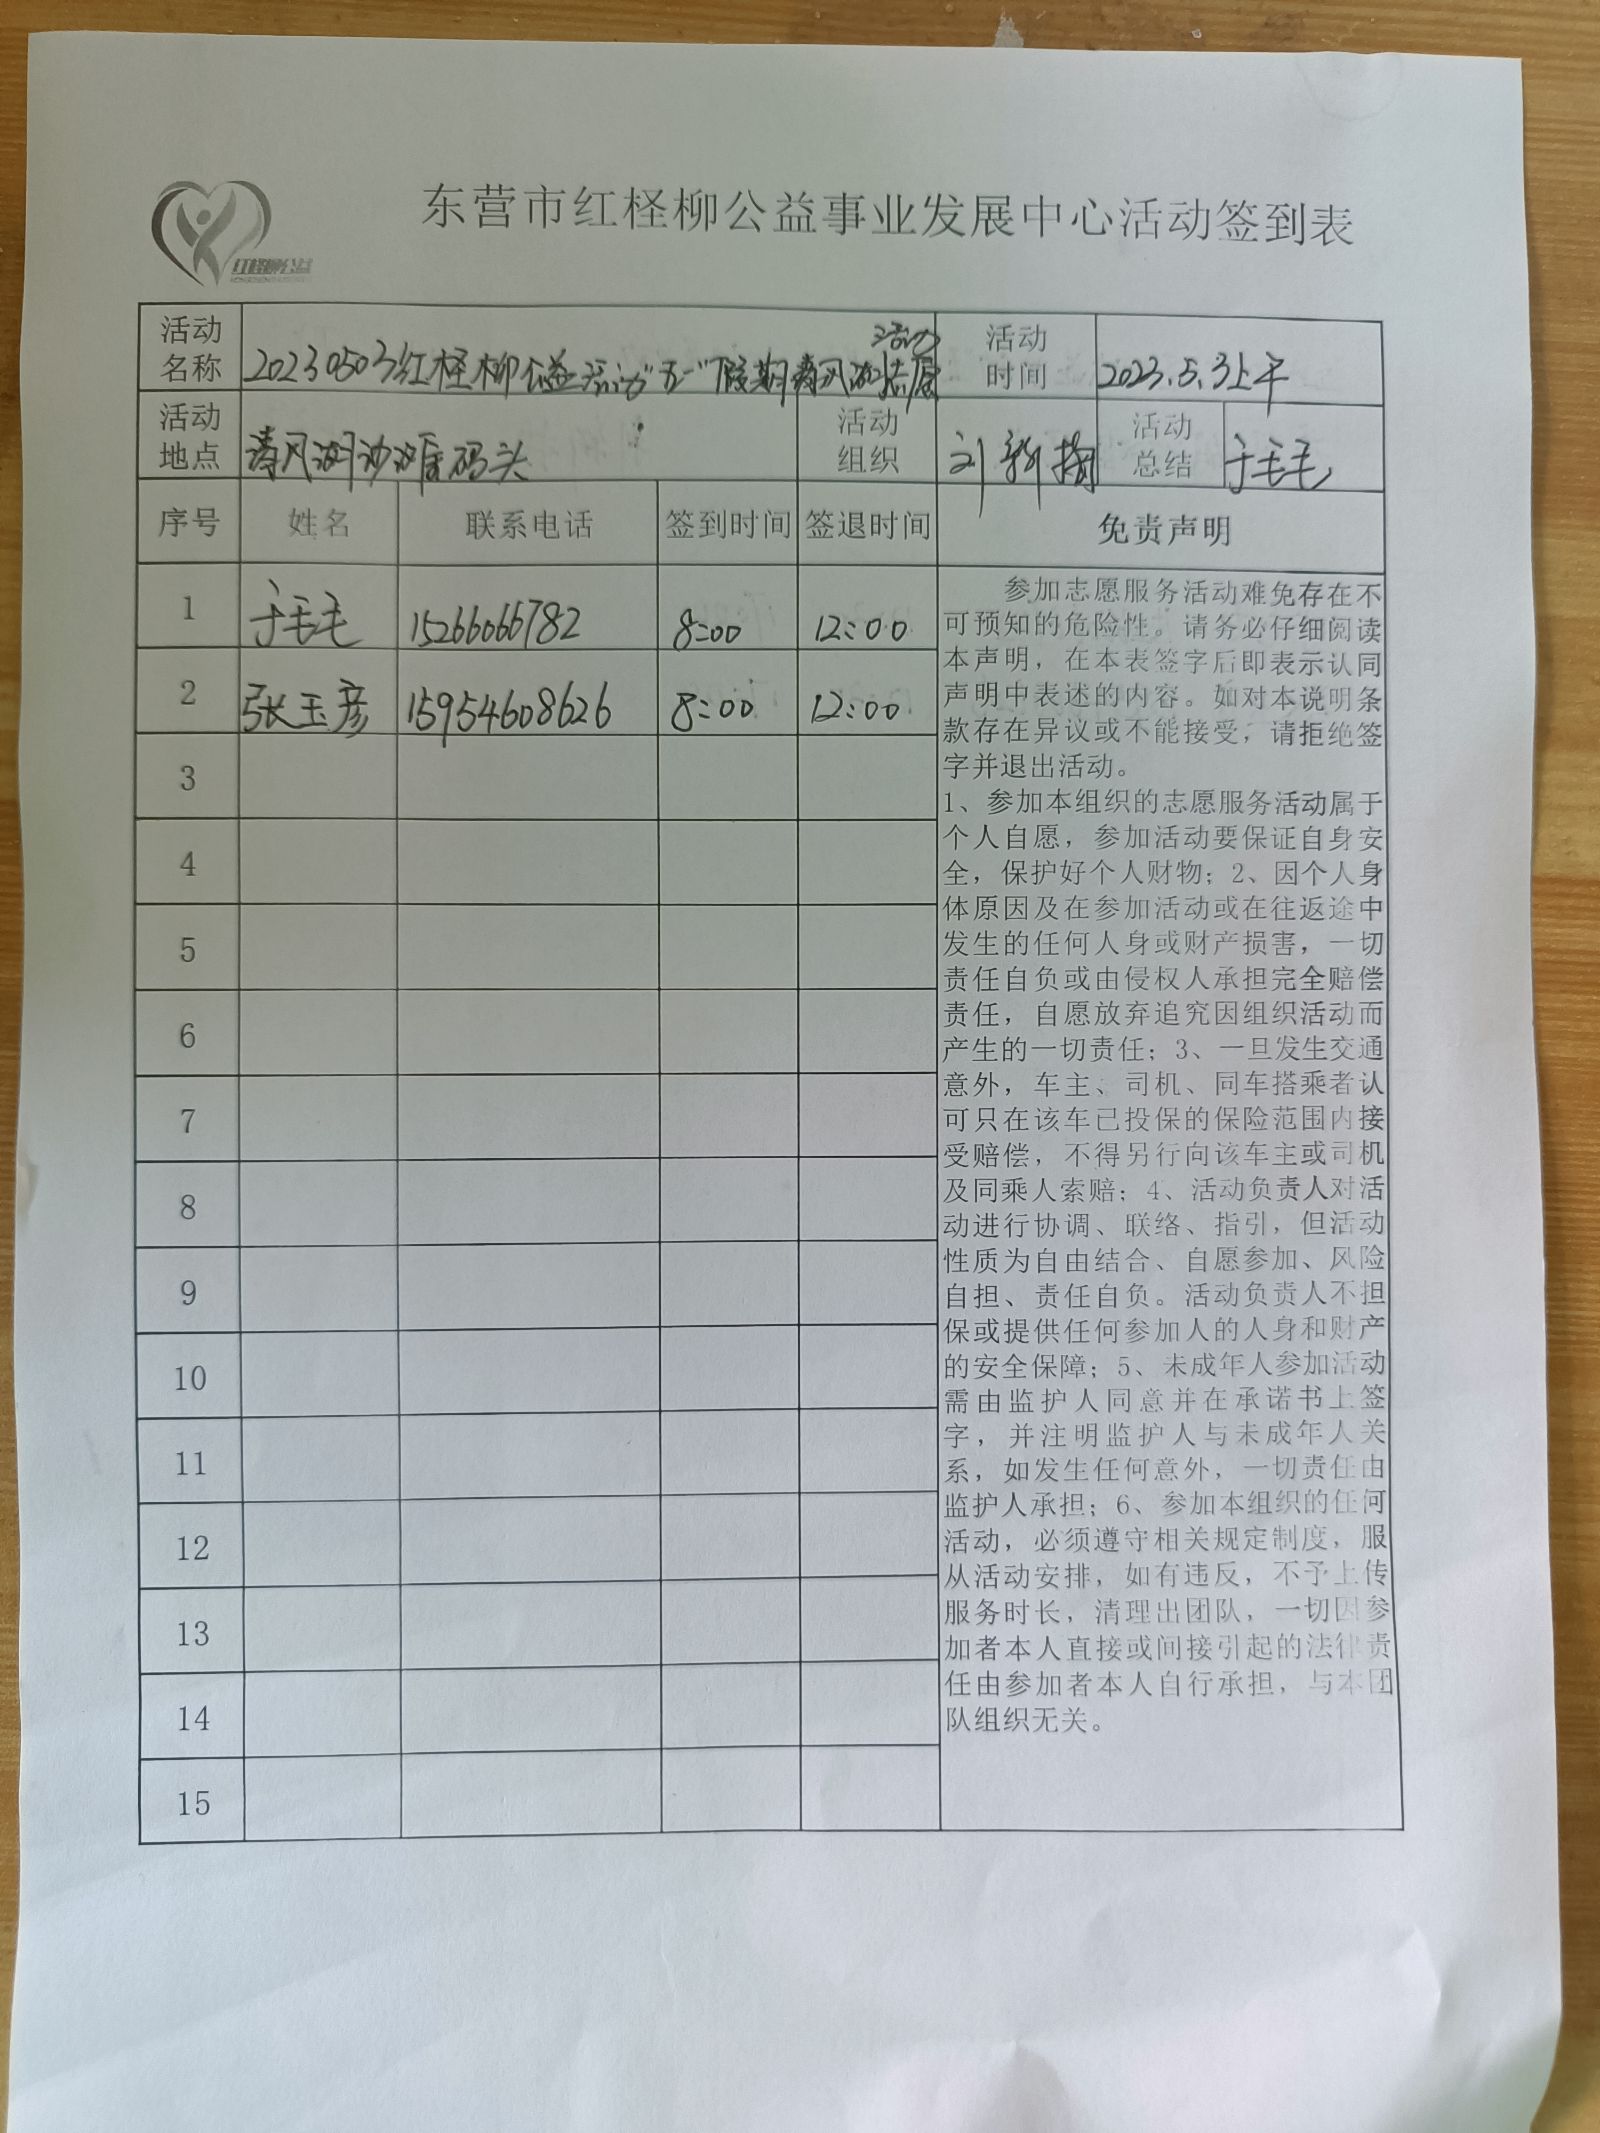 东营市红柽柳公益事业发展中心活动签到表
红柽柳公益
活动名称 20230503红柽柳公益活动"五一"假期清风湖志愿活动 活动时间 2023.5.3上午
活动地点 清风湖沙滩码头 活动组织 刘新梅 活动总结 于毛毛
序号 姓名 联系电话 签到时间 签退时间 免责声明
1 于毛毛 15266066782 8:00 12:00
2 张玉彦 15954608626 8:00 12:00
3
4
5
6
7
8
9
10
11
12
13
14
15
参加志愿服务活动难免存在不
可预知的危险性。请务必仔细阅读
本声明，在本表签字后即表示认同
声明中表述的内容。如对本说明条
款存在异议或不能接受，请拒绝签
字并退出活动。
1、参加本组织的志愿服务活动属于
个人自愿，参加活动要保证自身安
全，保护好个人财物；2、因个人身
体原因及在参加活动或在往返途中
发生的任何人身或财产损害，一切
责任自负或由侵权人承担完全赔偿
责任，自愿放弃追究因组织活动而
产生的一切责任；3、一旦发生交通
意外，车主、司机、同车搭乘者认
可只在该车已投保的保险范围内接
受赔偿，不得另行向该车主或司机
及同乘人索赔；4、活动负责人对活
动进行协调、联络、指引，但活动
性质为自由结合、自愿参加、风险
自担、责任自负。活动负责人不担
保或提供任何参加人的人身和财产
的安全保障；5、未成年人参加活动
需由监护人同意并在承诺书上签
字，并注明监护人与未成年人关
系，如发生任何意外，一切责任由
监护人承担；6、参加本组织的任何
活动，必须遵守相关规定制度，服
从活动安排，如有违反，不予上传
服务时长，清理出团队，一切因参
加者本人直接或间接引起的法律责
任由参加者本人自行承担，与本团
队组织无关。